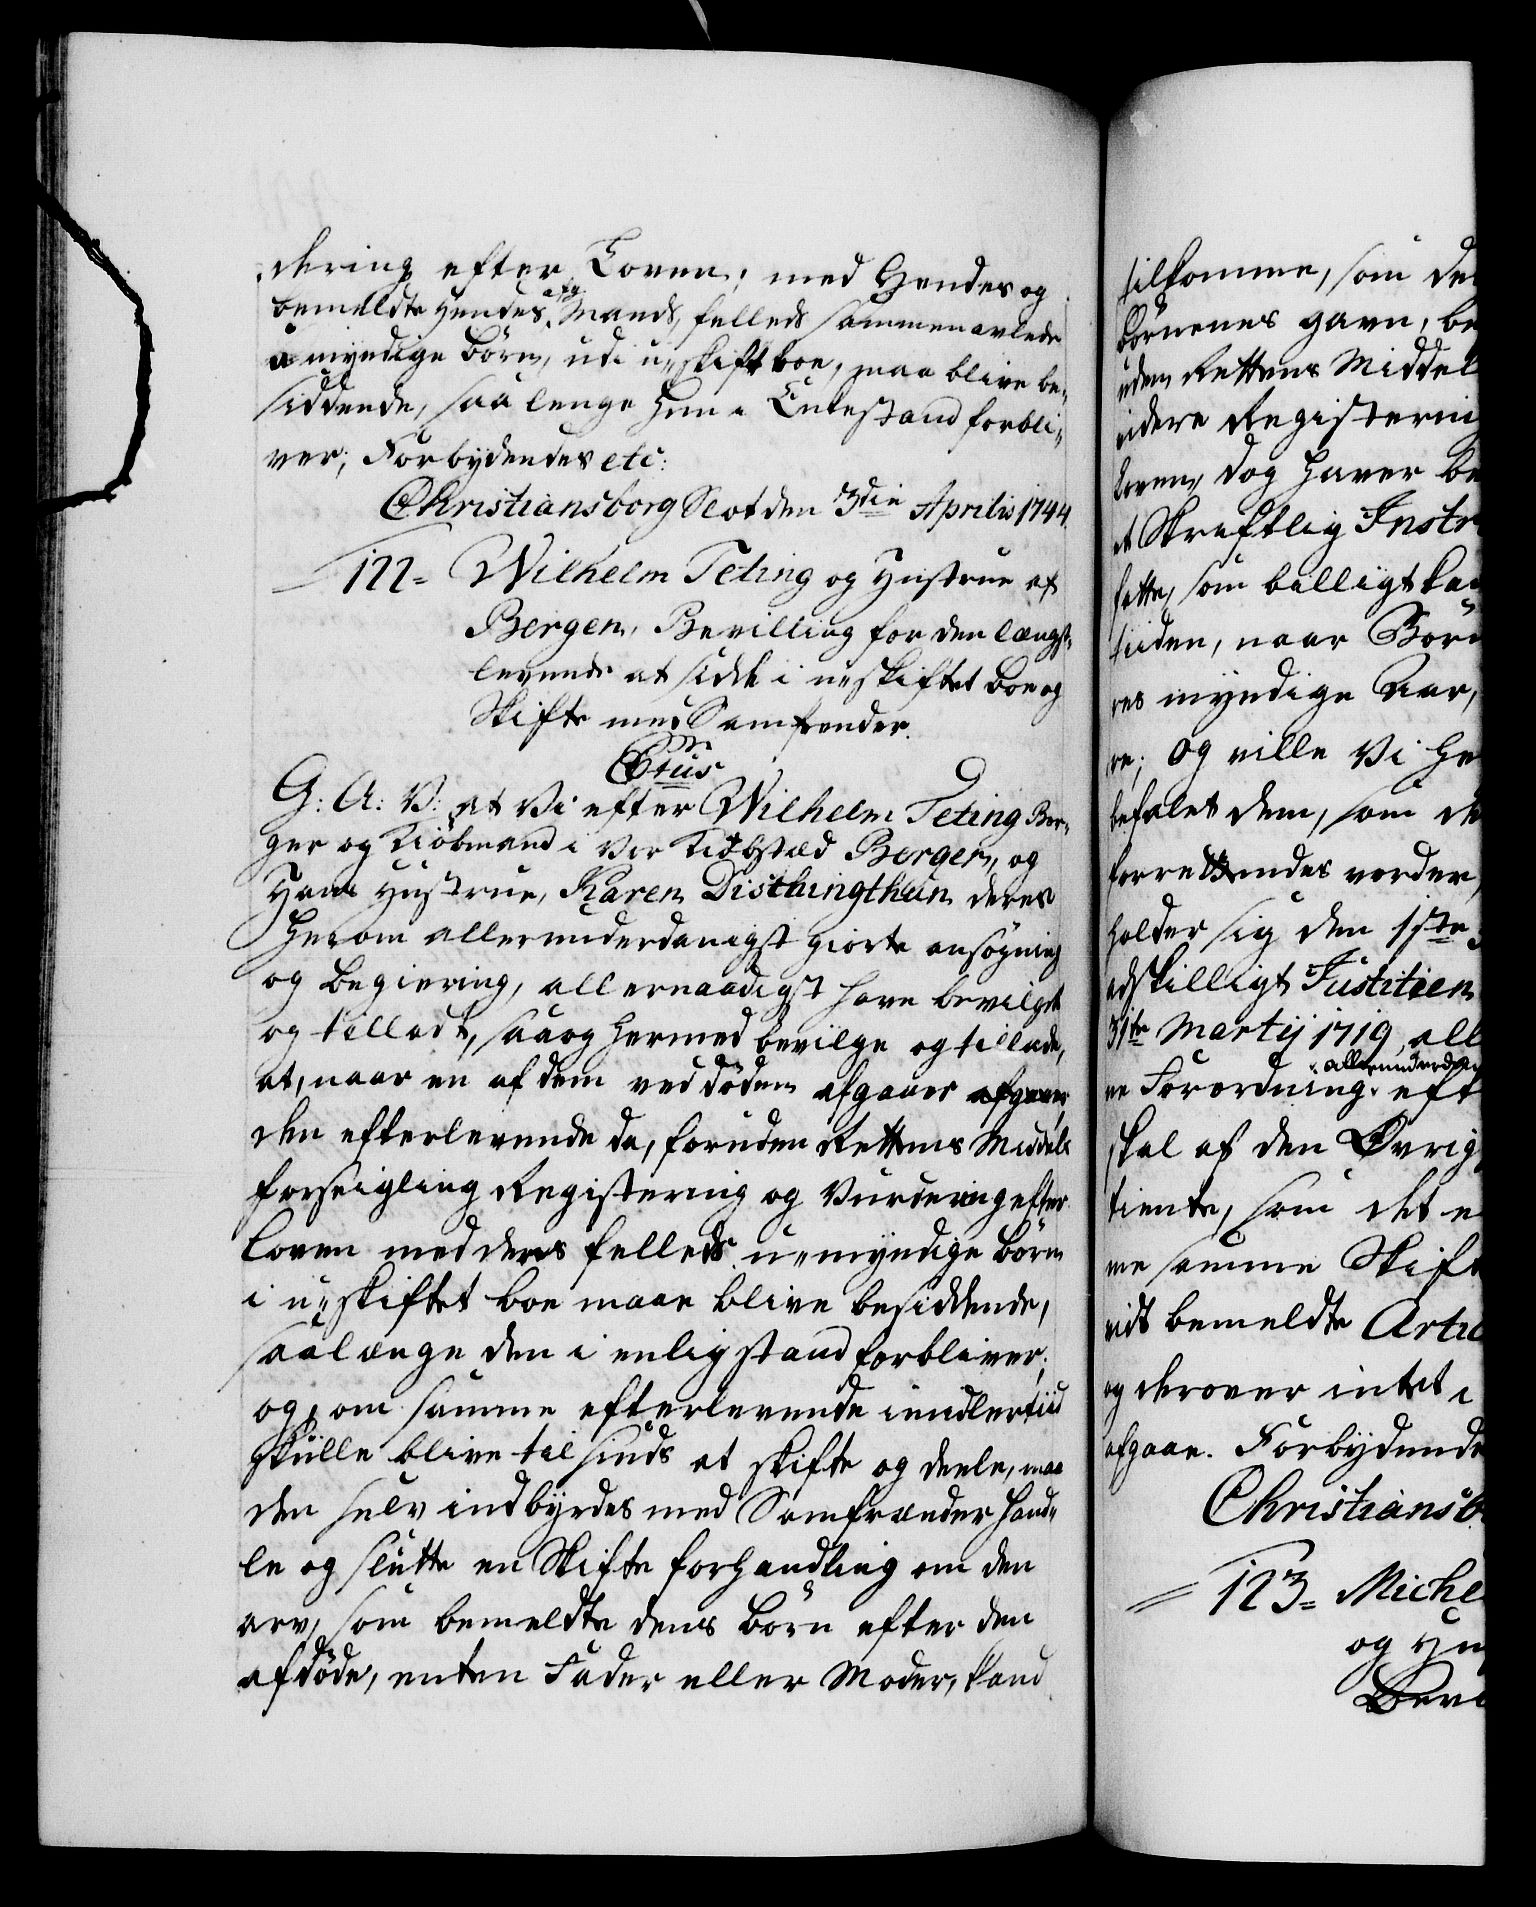 dering efter Loven; med Hendes og
bemeldte Hendes afg. Mands, felleds sammenavlede
umyndige Börn, udi u-skift boe, maa blive be-
siddende, saa lenge Hun i Enkestand forbli-
ver; Forbydendes etc:
Christiansborg Slot den 3die Aprilis 1744.
122= Wilhelm Teting og Hustrue af
Bergen, Bevilling for den længst-
levende at sidde i u-skiftet boe og
Skifte med Samfrender.
C 6tus
G: A: V: at Vi efter Wilhelm Teting Bor-
ger og Kiöbmand i Vor Kiöbstæd Bergen, og
Hans Hustrue, Karen Disthingthun deres
herom allerunderdanigst giorte ansøgning
og begiering, allernaadigst have bevilget
og tilladt, saa og hermed bevilge og tillade,
at, naar en af dem ved döden afgaaer afgaaer,
den efterlevende da, foruden Rettens Middels
forseigling Registering og Vurdering efter
Loven med deres felleds u-myndige Börn
i u-skiftet boe maae blive besiddende,
saalænge den i enlig stand forbliver;
og, om samme efterlevende imidlertiid
skulle blive til sinds at skifte og deele, maa
den selv indbyrdes med Samfrænder hand-
le og slutte en Skifte forhandling om den
arv, som bemeldte dens Börn efter den
afdöde, enten Fader eller Moder, kand
tilkomme, som de
Börnenes gavn, be
uden Rettens Middel
videre Registering
Loven, dog haver be
et Skriftlig Instr
fatte, som billigt ka
tiiden, naar Börn
res myndige Aar,
re; og ville Vi he
befalet dem, som de
forrettendes vorder,
holder sig den 1ste
adskilligt Justitien
31te Martij 1719 all
ne Forordning allerunderda eft
skal af den Øvrig
tiente, som det e
me samme Skift
vidt bemeldte Artic
og derover intet i
afgaae. Forbydende
Christiansb
123= Miche
og Hu
Bevi